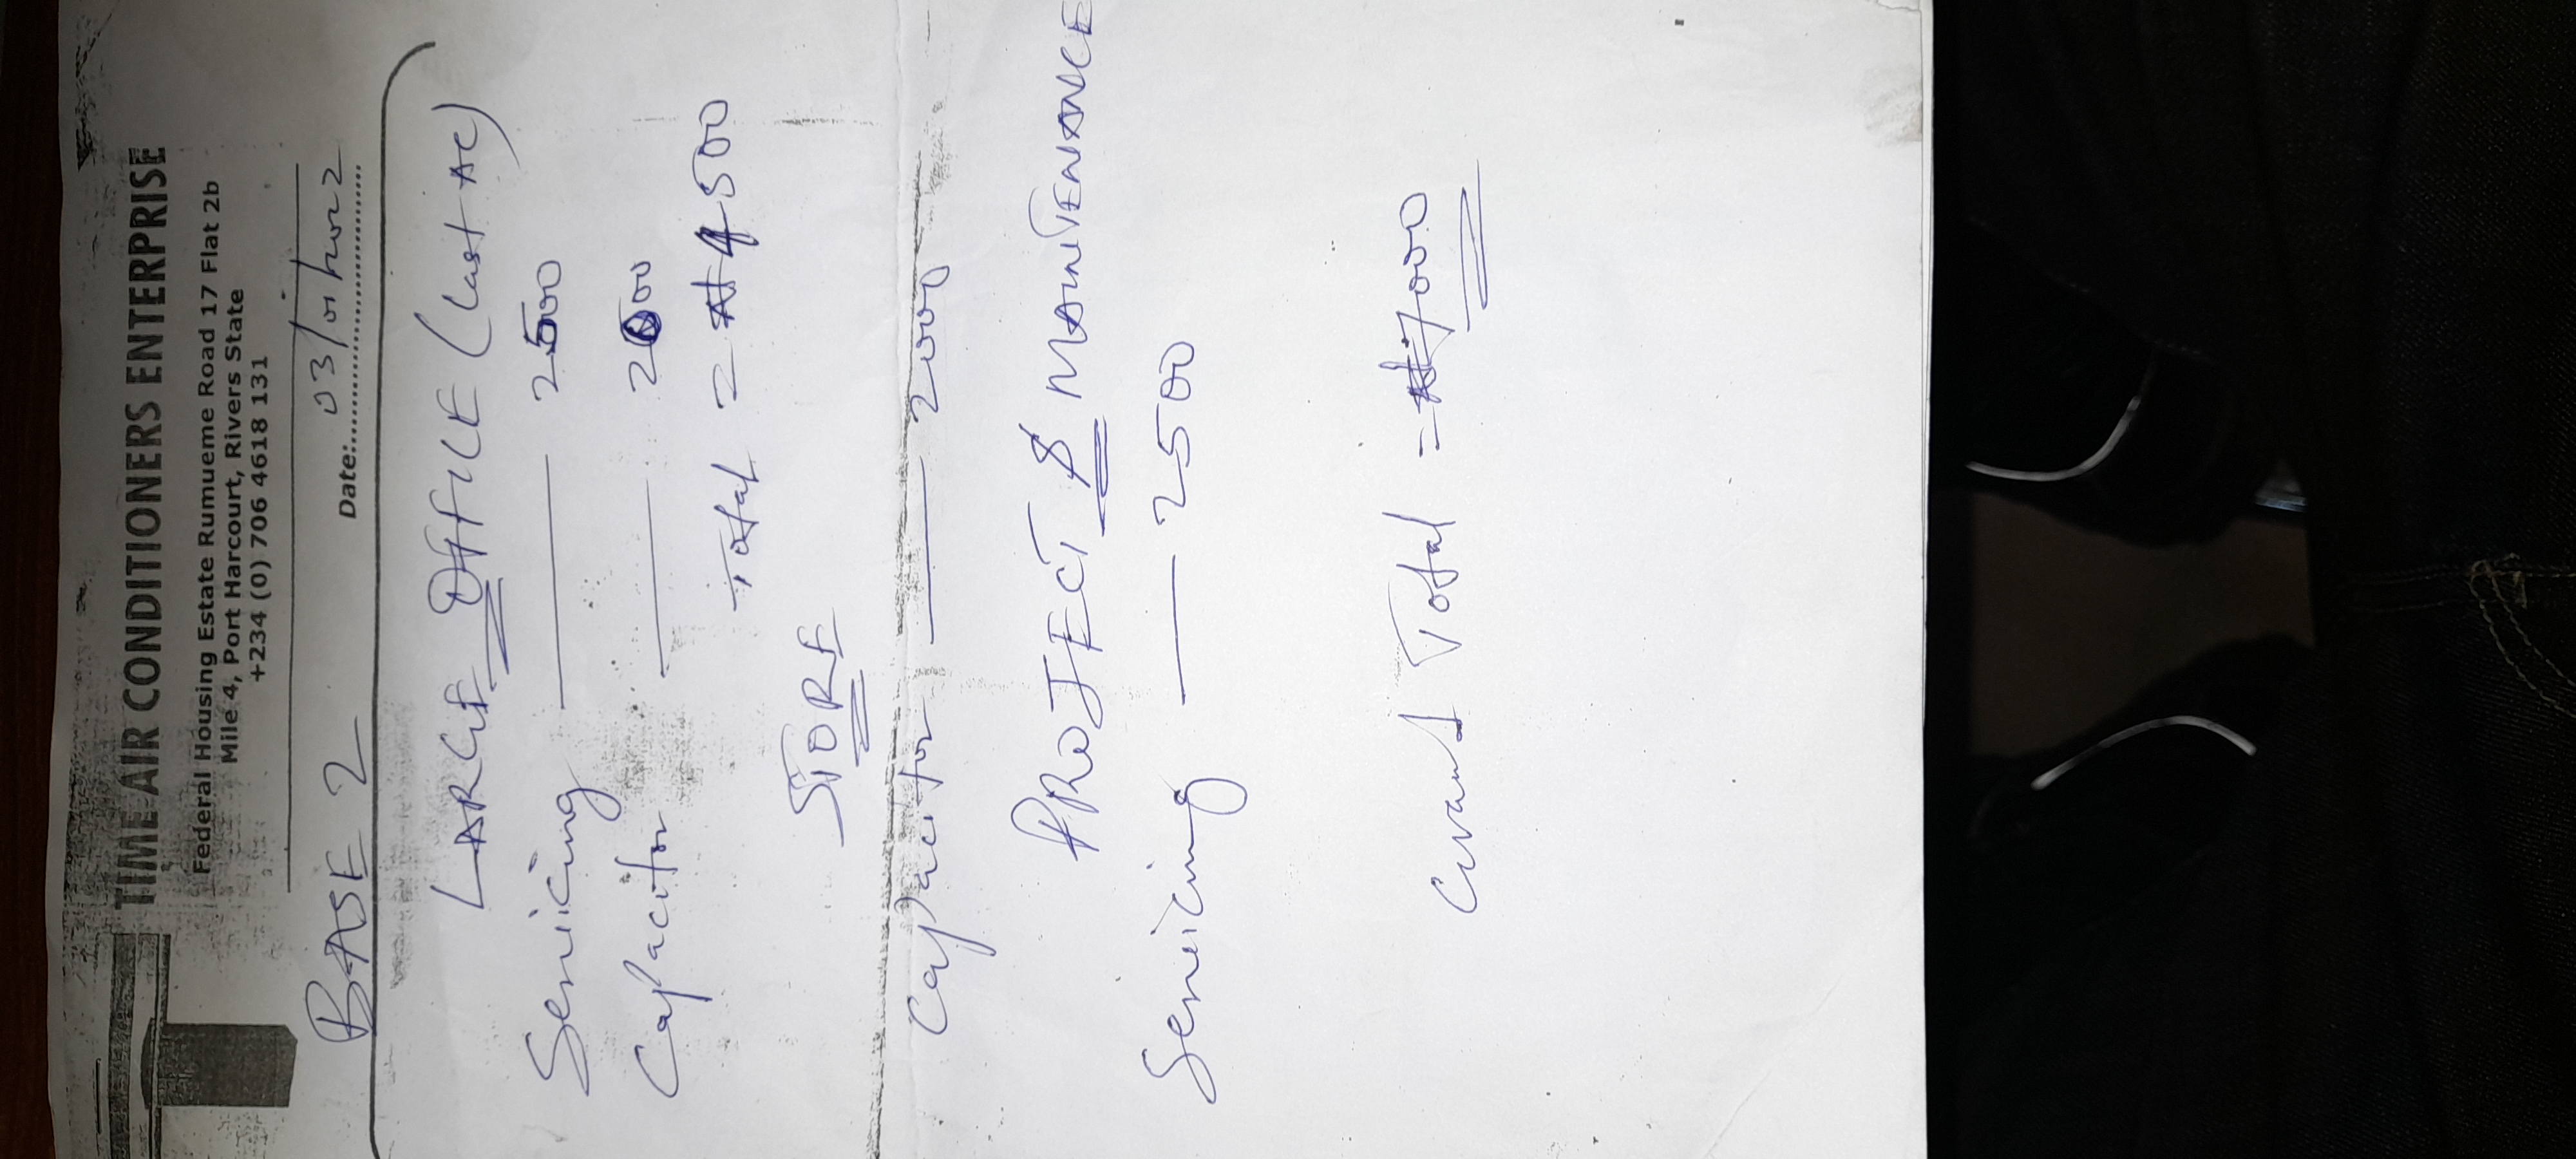 TIME AIR CONDITIONERS ENTERPRISE
Federal Housing Estate Rumueme Road 17 Flat 2b
Mile 4, Port Harcourt, Rivers State
+234 (0) 706 4618 131
BASE 2 Date: 03/01/2022
LARGE OFFICE (last AC)
Servicing — 2500
Capacitor — 2000
Total = ₦4500
STORE
Capacitor — 2000
PROJECT & MAINTENANCE
Servicing — 2500
Grand Total = ₦7000